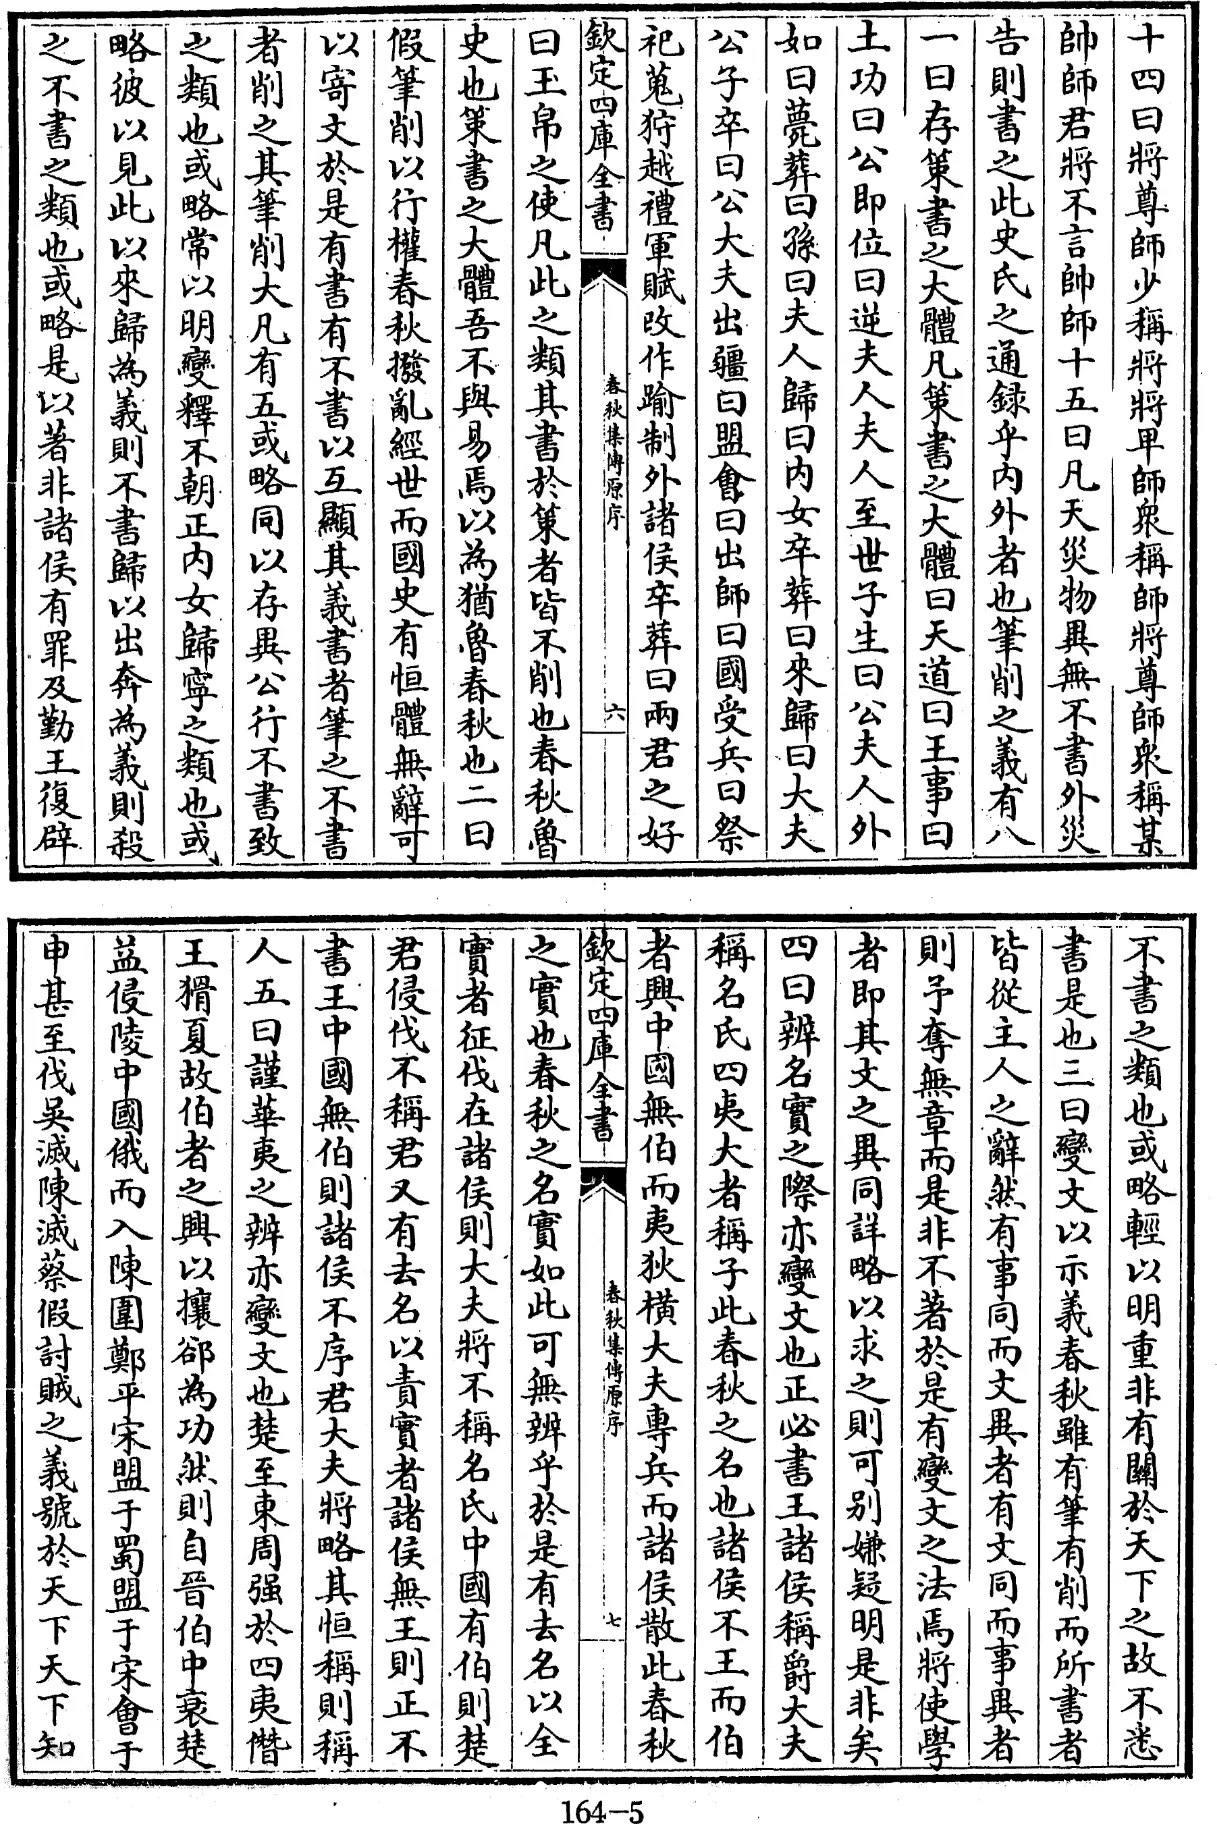 十四曰將尊師少稱將將卑師衆稱師將尊師衆稱某
帥師君將不言帥師十五曰凡天災物異無不書外災
告則書之此史氏之通録乎内外者也筆削之義有八
一曰存策書之大體凡策書之大體曰天道曰王事曰
土功曰公即位曰逆夫人夫人至世子生曰公夫人外
如曰薨葬曰孫曰夫人歸曰内女卒葬曰來歸曰大夫
公子卒曰公大夫出疆曰盟會曰出師曰國受兵曰祭
祀蒐狩越禮軍賦改作踰制外諸侯卒葬曰兩君之好
欽定四庫全書
春秋集傳原序
六
曰玉帛之使凡此之類其書於策者皆不削也春秋魯
史也策書之大體吾不與易焉以為猶魯春秋也二曰
假筆削以行權春秋撥亂經世而國史有恒體無辭可
以寄文於是有書有不書以互顯其義書者筆之不書
者削之其筆削大凡有五或略同以存異公行不書致
之類也或略常以明變釋不朝正内女歸寧之類也或
略彼以見此以來歸為義則不書歸以出奔為義則殺
之不書之類也或略是以著非諸侯有罪及勤王復辟
不書之類也或略輕以明重非有關於天下之故不悉
書是也三曰變文以示義春秋雖有筆有削而所書者
皆從主人之辭然有事同而文異者有文同而事異者
則予奪無章而是非不著於是有變文之法焉將使學
者即其文之異同詳略以求之則可别嫌疑明是非矣
四曰辨名實之際亦變文也正必書王諸侯稱爵大夫
稱名氏四夷大者稱子此春秋之名也諸侯不王而伯
者興中國無伯而夷狄横大夫專兵而諸侯散此春秋
欽定四庫全書
春秋集傳原序
七
之實也春秋之名實如此可無辨乎於是有去名以全
實者征伐在諸侯則大夫將不稱名氏中國有伯則楚
君侵伐不稱君又有去名以責實者諸侯無王則正不
書王中國無伯則諸侯不序君大夫將略其恒稱則稱
人五曰謹華夷之辨亦變文也楚至東周强於四夷僭
王猾夏故伯者之興以攘郤為功然則自晉伯中衰楚
益侵陵中國俄而入陳圍鄭平宋盟于蜀盟于宋會于
申甚至伐吳滅陳滅蔡假討賊之義號於天下天下知
164-5